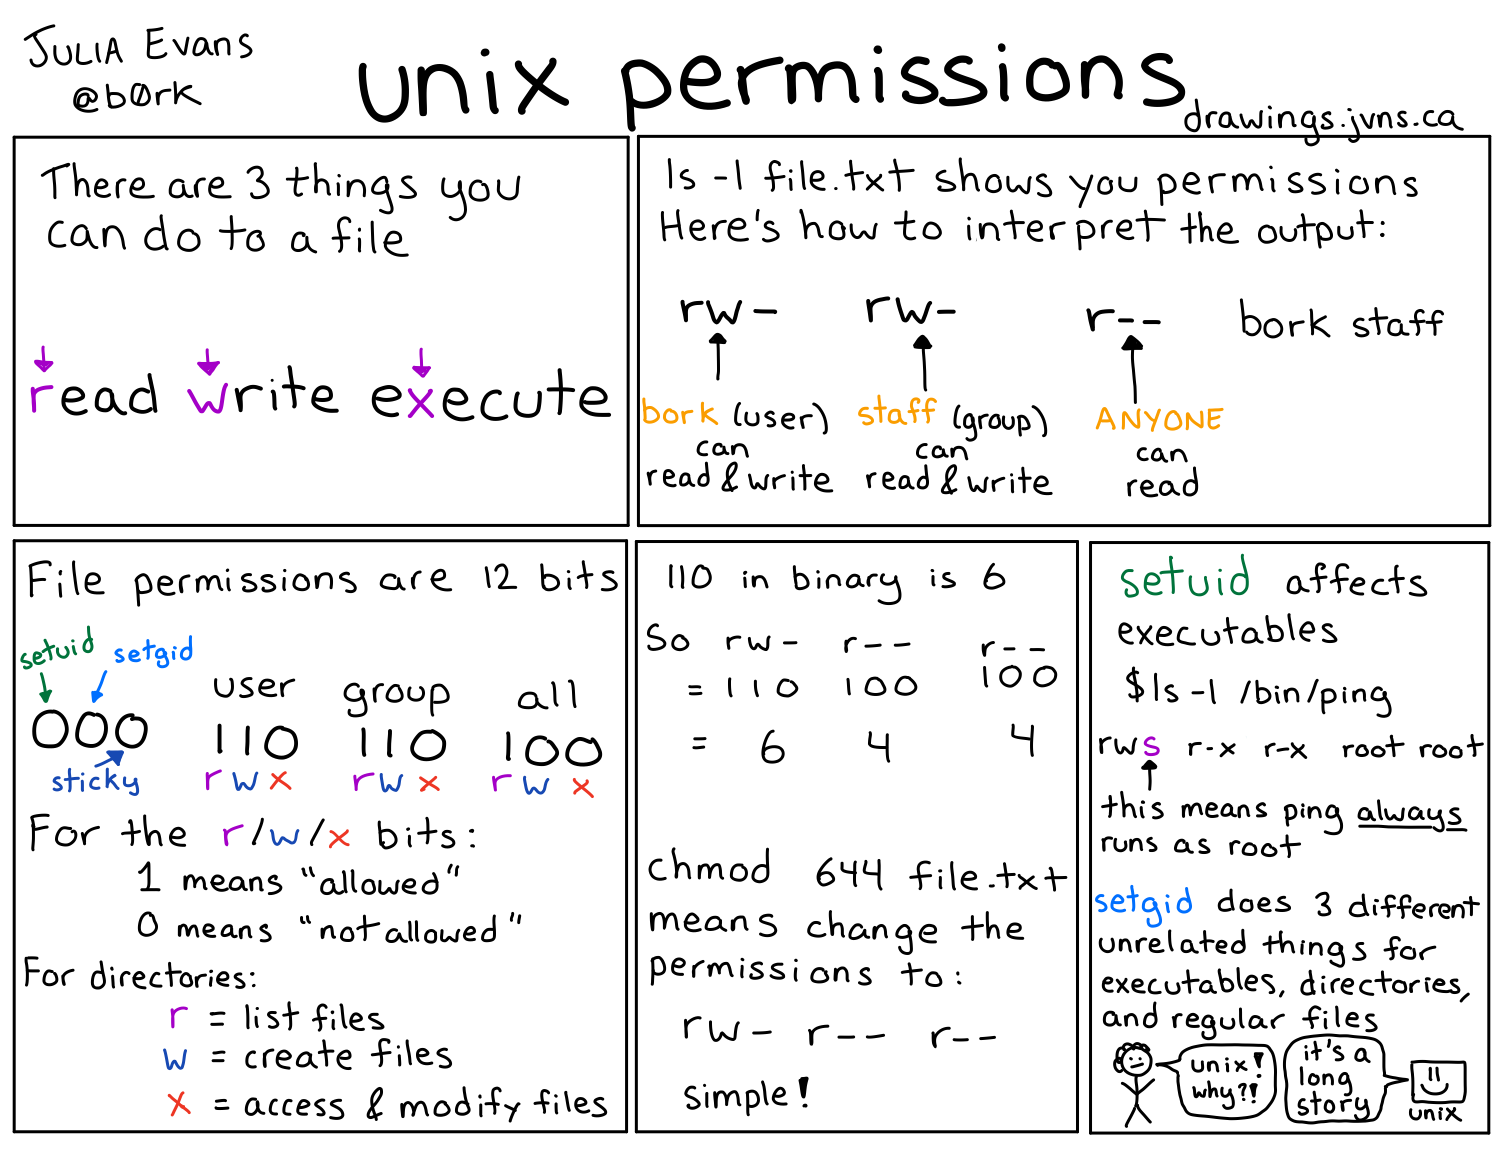 JULIA Evans
@b0rk
unix permissions
drawings.jvns.ca
There are 3 things you
can do to a file
read write execute
ls -l file.txt shows you permissions
Here's how to interpret the output:
rw- rw- r-- bork staff
bork (user) staff (group) ANYONE
can can can
read & write read & write read
File permissions are 12 bits
setuid setgid
user group all
000 110 110 100
sticky r w x r w x r w x
For the r/w/x bits:
1 means "allowed"
0 means "not allowed"
For directories:
r = list files
w = create files
x = access & modify files
110 in binary is 6
So rw- r-- r--
= 110 100 100
= 6 4 4
chmod 644 file.txt
means change the
permissions to:
rw- r-- r--
simple!
setuid affects
executables
$ls -l /bin/ping
rws r-x r-x root root
this means ping always
runs as root
setgid does 3 different
unrelated things for
executables, directories,
and regular files
unix!
why?!
it's a
long
story
unix